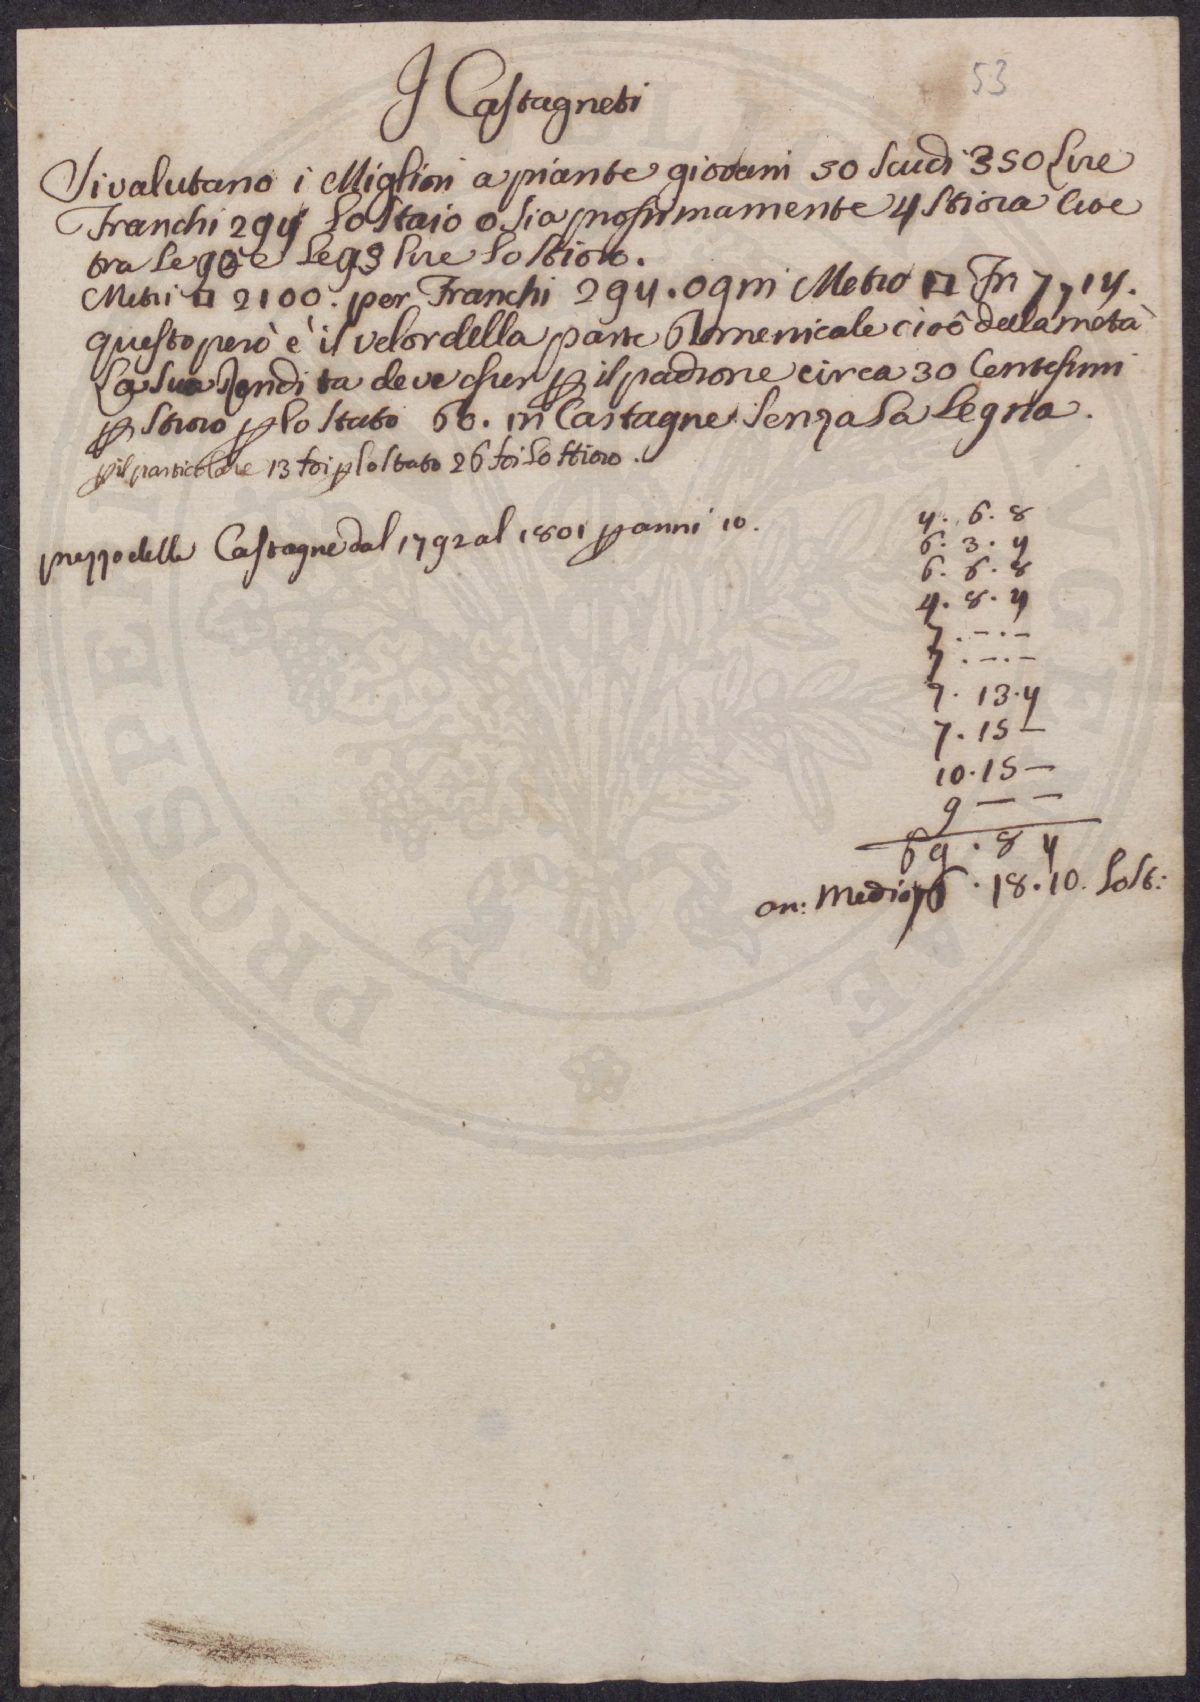 53
I Castagneti
Si valutano i Migliori a piante giovani 50 Scudi 350 Lire
Franchi 294 lo staio o sia prossimamente 4 stiora cioe
tra le 90 e le 93 lire lo stioro.
Metri □ 2100. per Franchi 294. ogni Metro □ Fr 7,14.
questo però è il valor della parte Domenicale cioè della metà
La sua Rendita deve esser p il padrone circa 30 Centesimi
p stioro p lo stato 60. in Castagne senza la legna.
p il particolare 13 soi p lo stato 26 soi lo stioro.
prezzo delle Castagne dal 1792 al 1801 p anni 10.
4. 6. 8
6. 3. 4
6. 6. 8
4. 8. 4
7. –. –
7. –. –
7. 13. 4
7. 15 –
10. 15 –
9 – –
69. 8 4
an: Medio 6. 18. 10. lo st:
PROSPERITATI